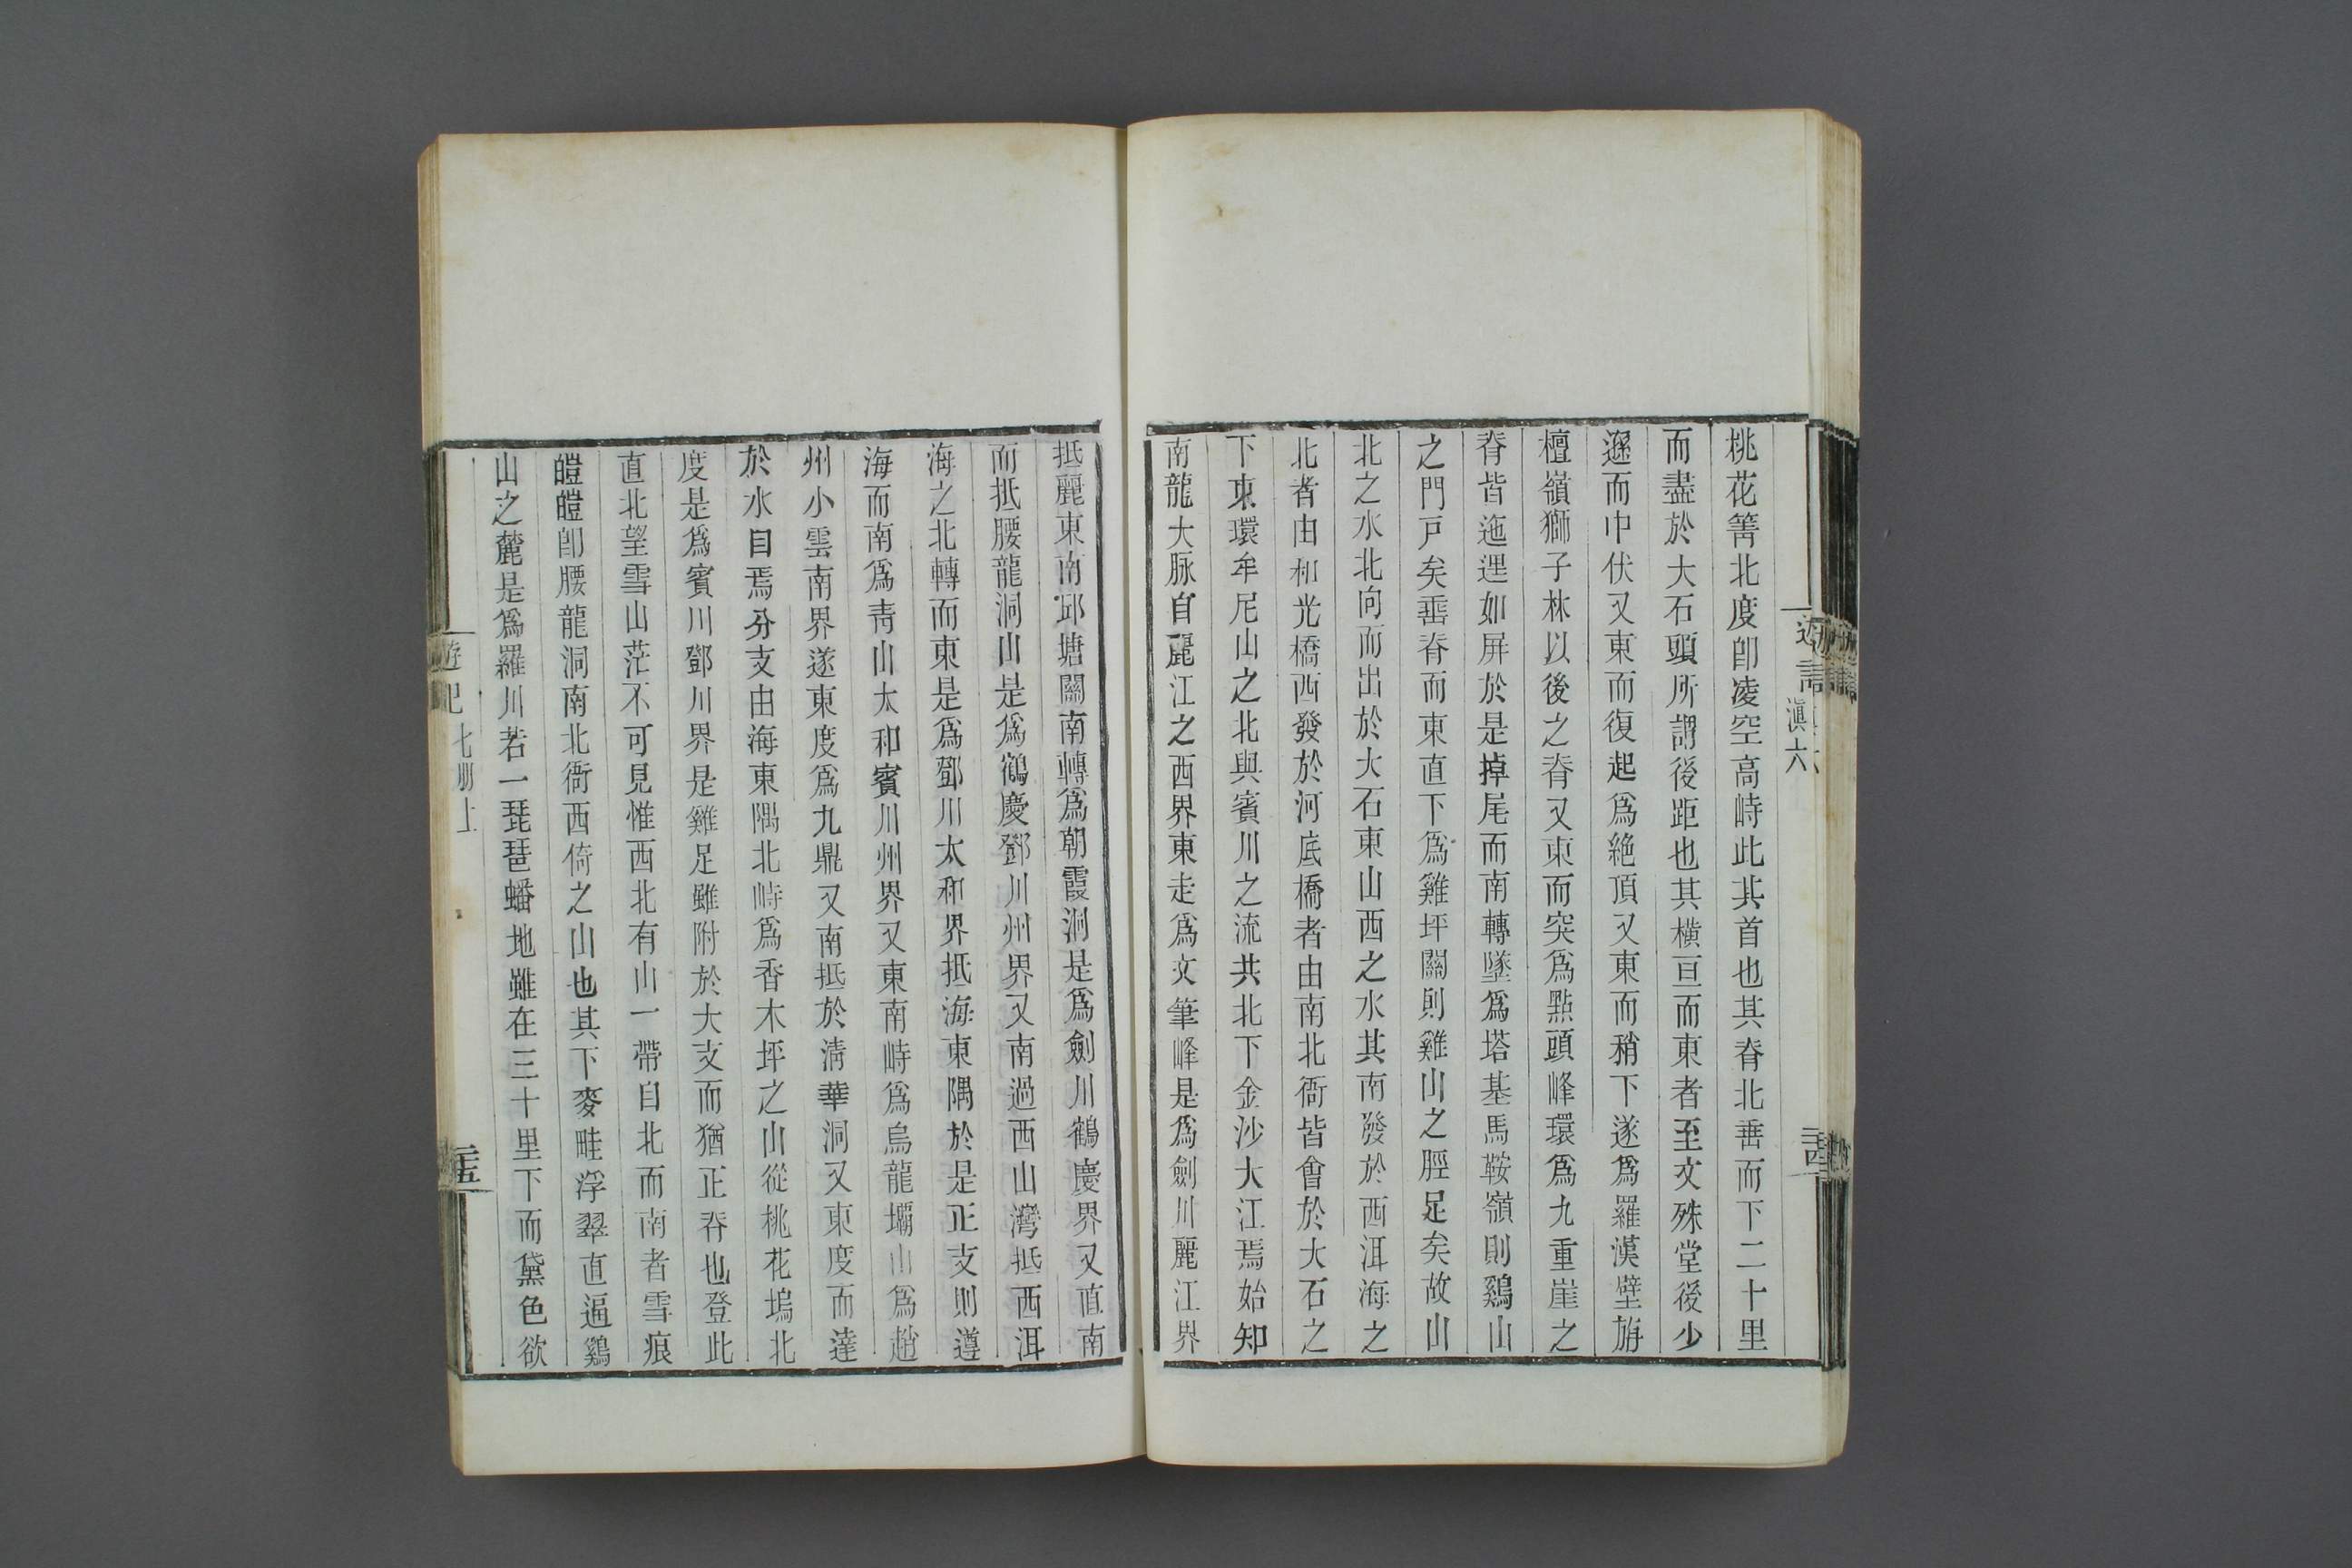 桃花箐北度卽凌空高峙此其首也其脊北垂而下二十里
而盡於大石頭所謂後距也其橫亘而東者至文殊堂後少
遜而中伏又東而復起爲絶頂又東而稍下遂爲羅漢壁旃
檀嶺獅子林以後之脊又東而突爲點頭峰環爲九重崖之
脊皆迤逦如屏於是掉尾而南轉墜爲塔基馬鞍嶺則鷄山
之門戸矣垂脊而東直下爲雞坪關則雞山之脛足矣故山
北之水北向而出於大石東山西之水其南發於西洱海之
北者由和光橋西發於河底橋者由南北衙皆會於大石之
下東環牟尼山之北與賓川之流共北下金沙大江焉始知
南龍大脉自麗江之西界東走爲文筆峰是爲劍川麗江界
抵麗東南邱塘關南轉爲朝霞洞是爲劍川鶴慶界又直南
而抵腰龍洞山是爲鶴慶鄧川州界又南過西山灣抵西洱
海之北轉而東是爲鄧川太和界抵海東隅於是正支則遵
海而南爲靑山太和賓川州界又東南峙爲烏龍壩山爲趙
州小雲南界遂東度爲九鼎又南抵於淸華洞又東度而達
於水目焉分支由海東隅北峙爲香木坪之山從桃花塢北
度是爲賓川鄧川界是雞足雖附於大支而猶正脊也登此
直北望雪山茫不可見惟西北有山一帶自北而南者雪痕
皚皚卽腰龍洞南北衙西倚之山也其下麥畦浮翠直逼鷄
山之麓是爲羅川若一琵琶蟠地雖在三十里下而黛色欲
遊記 七册上
二十五
滇六
二十四